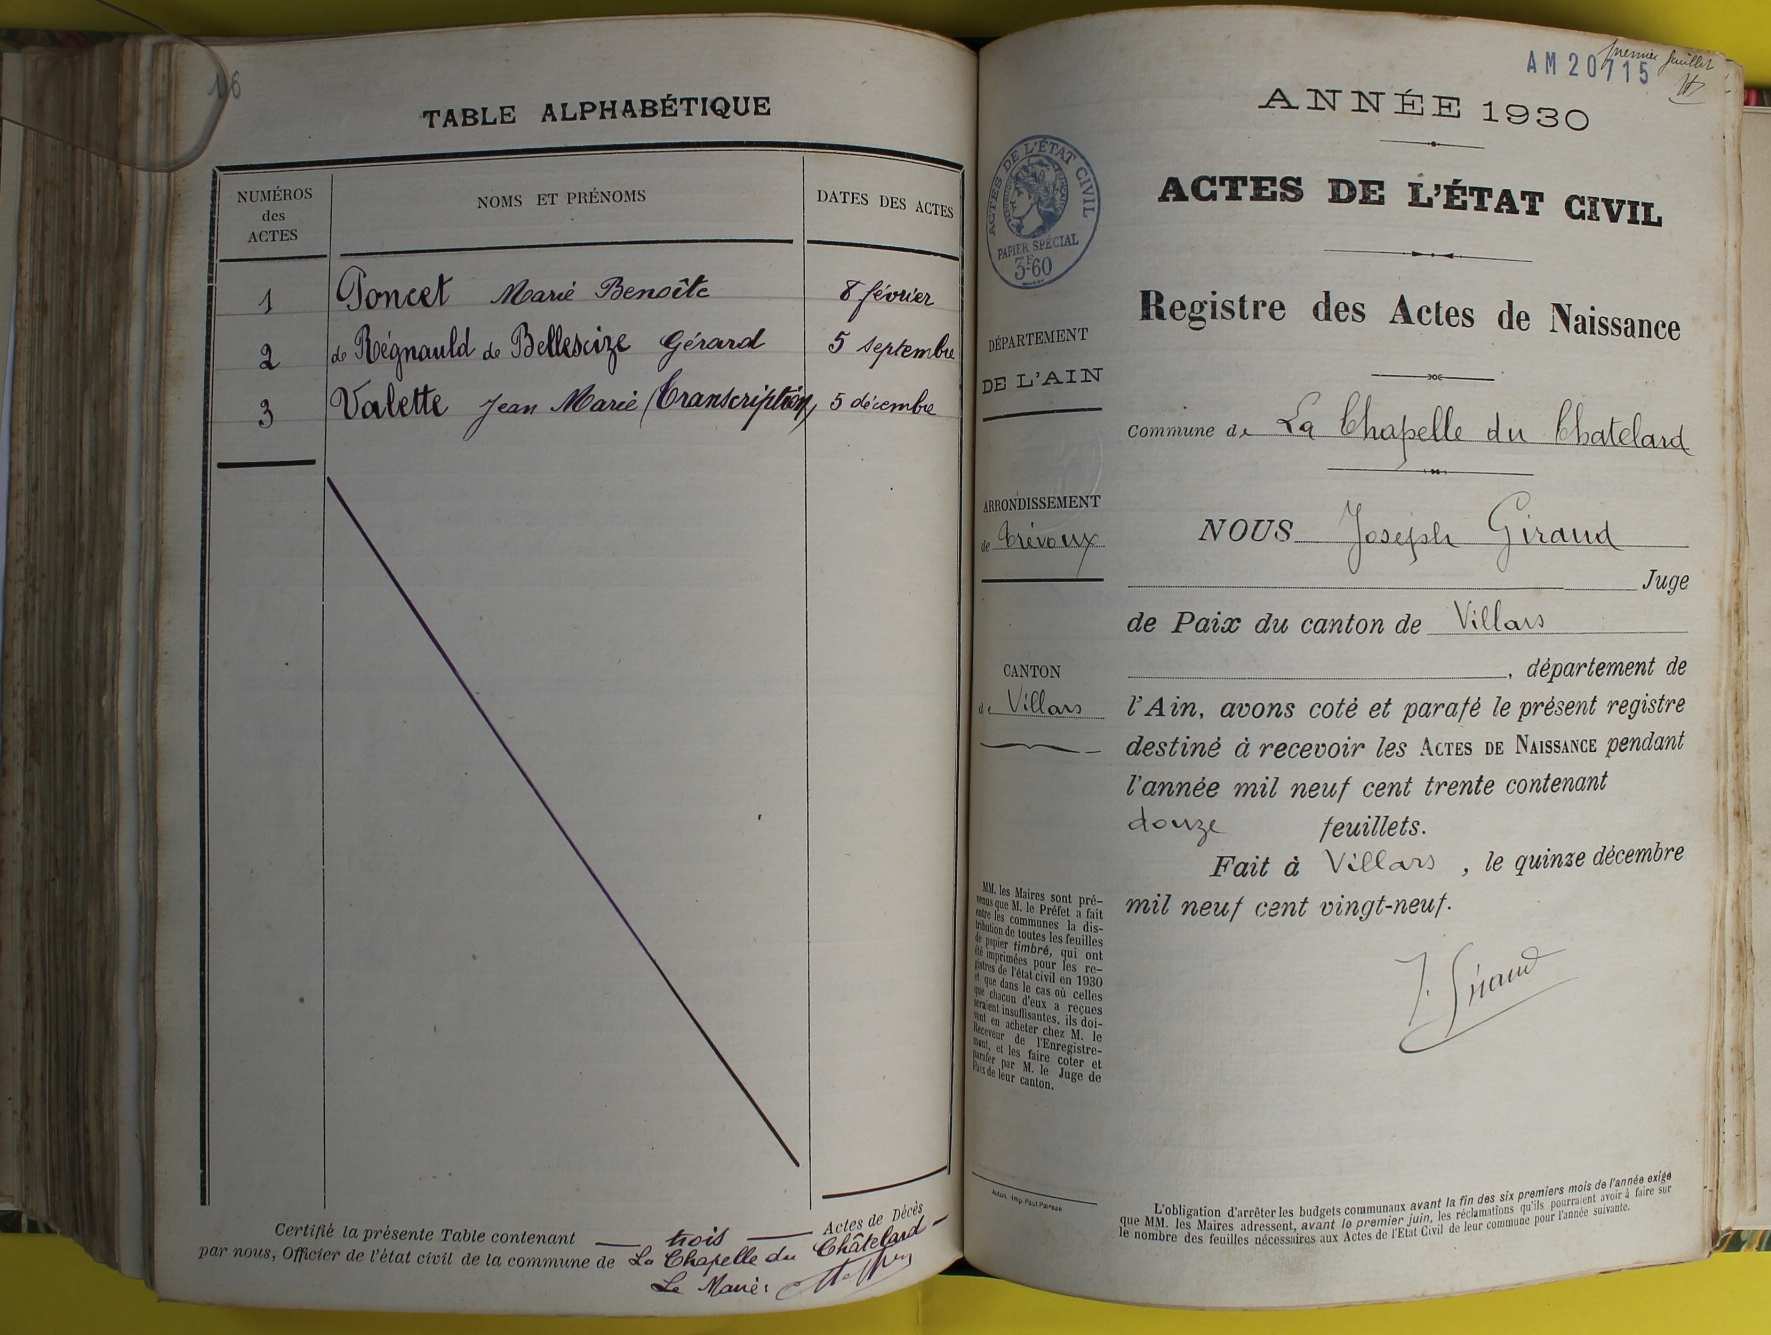 116
TABLE ALPHABÉTIQUE
NUMÉROS
des
ACTES
NOMS ET PRÉNOMS
DATES DES ACTES
1 Poncet Marie Benoîte 8 février
2 de Régnauld de Bellescize Gérard 5 septembre
3 Valette Jean Marie (Transcription) 5 décembre
Certifié la présente Table contenant trois Actes de Décès
par nous, Officier de l'état civil de la commune de La Chapelle du Châtelard
Le Maire:
premier feuillet
AM 20715
ANNÉE 1930
ACTES DE L'ÉTAT CIVIL
ACTES DE L'ÉTAT CIVIL
PAPIER SPÉCIAL
3F60
Registre des Actes de Naissance
DÉPARTEMENT
DE L'AIN
Commune de La Chapelle du Chatelard
ARRONDISSEMENT
de Trévoux
NOUS Joseph Giraud
Juge
de Paix du canton de Villars
CANTON
de Villars
, département de
l'Ain, avons coté et parafé le présent registre
destiné à recevoir les ACTES DE NAISSANCE pendant
l'année mil neuf cent trente contenant
douze feuillets.
Fait à Villars, le quinze décembre
mil neuf cent vingt-neuf.
J. Giraud
MM. les Maires sont pré-
venus que M. le Préfet a fait
entre les communes la dis-
tribution de toutes les feuilles
de papier timbré, qui ont
été imprimées pour les re-
gistres de l'état civil en 1930
et que dans le cas où celles
que chacun d'eux a reçues
seraient insuffisantes, ils doi-
vent en acheter chez M. le
Receveur de l'Enregistre-
ment, et les faire coter et
parafer par M. le Juge de
Paix de leur canton.
L'obligation d'arrêter les budgets communaux avant la fin des six premiers mois de l'année exige
que MM. les Maires adressent, avant le premier juin, les réclamations qu'ils pourraient avoir à faire sur
le nombre des feuilles nécessaires aux Actes de l'Etat Civil de leur commune pour l'année suivante.